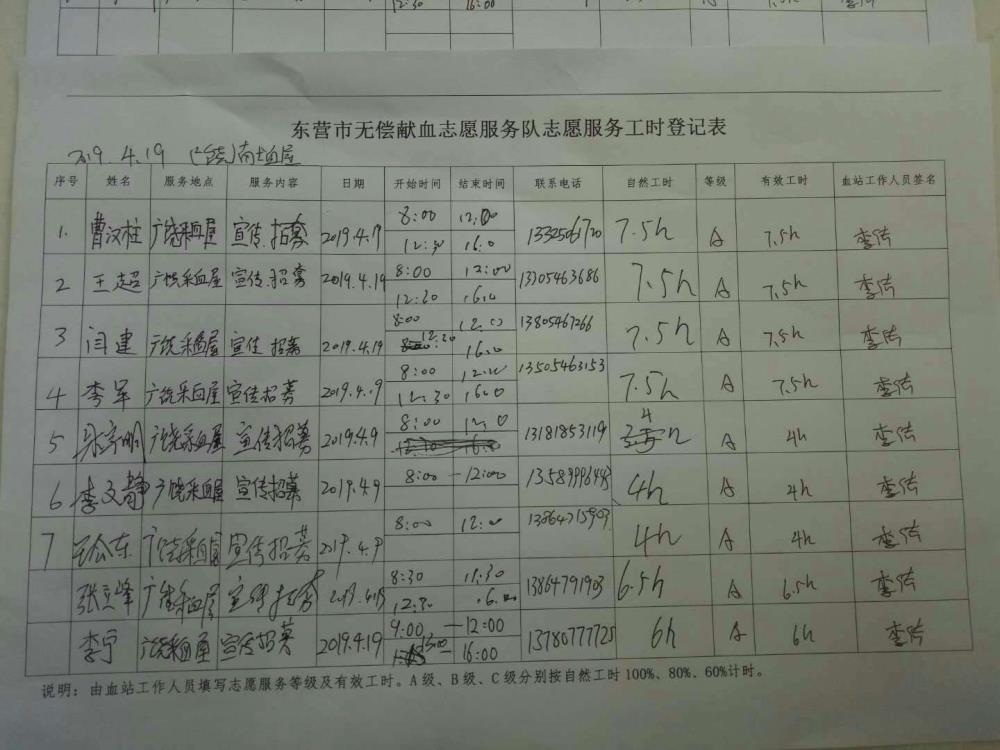 12:30 16:00
东营市无偿献血志愿服务队志愿服务工时登记表
2019.4.19 (广饶)
序号 姓名 服务地点 服务内容 日期 开始时间 结束时间 联系电话 自然工时 等级 有效工时 血站工作人员签名
1. 曹汉柱 广饶采血屋 宣传.招募 2019.4.19 8:00 12:00 7.5h A 7.5h
12:30 16:0
2 王超 广饶采血屋 宣传.招募 2019.4.19 8:00 12:00 13305463686 7.5h A 7.5h
12:30 16:0
3 闫建 广饶采血屋 宣传 招募 2019.4.19 8:00 12:00 13805467266 7.5h A 7.5h
12:30 16:0
4 李军 广饶采血屋 宣传招募 2019.4.19 8:00 12:00 13505463153 7.5h A 7.5h
12:30 16:0
5 广饶采血屋 宣传招募 2019.4.9 8:00 12:0 13181853119 4h A 4h
6 李文静 广饶采血屋 宣传招募 2019.4.9 8:00-12:00 4h A 4h
7 广饶采血屋 宣传招募 2019.4.9 8:00 12:00 4h A 4h
张立峰 广饶采血屋 宣传招募 8:30 11:30 13864791903 6.5h A 6.5h
12:30 16:00
李宁 广饶采血屋 宣传招募 2019.4.19 9:00-12:00 13780777725 6h A 6h
13:00-16:00
说明：由血站工作人员填写志愿服务等级及有效工时。A级、B级、C级分别按自然工时100%、80%、60%计时。